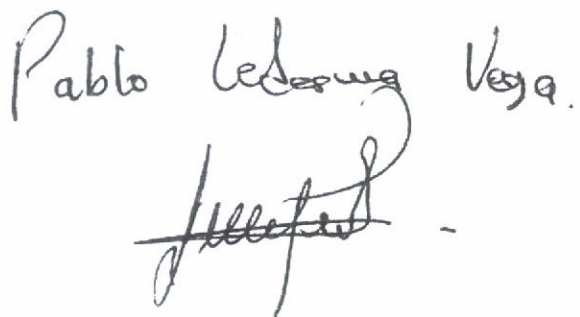 Pablo Ledesma Vega.